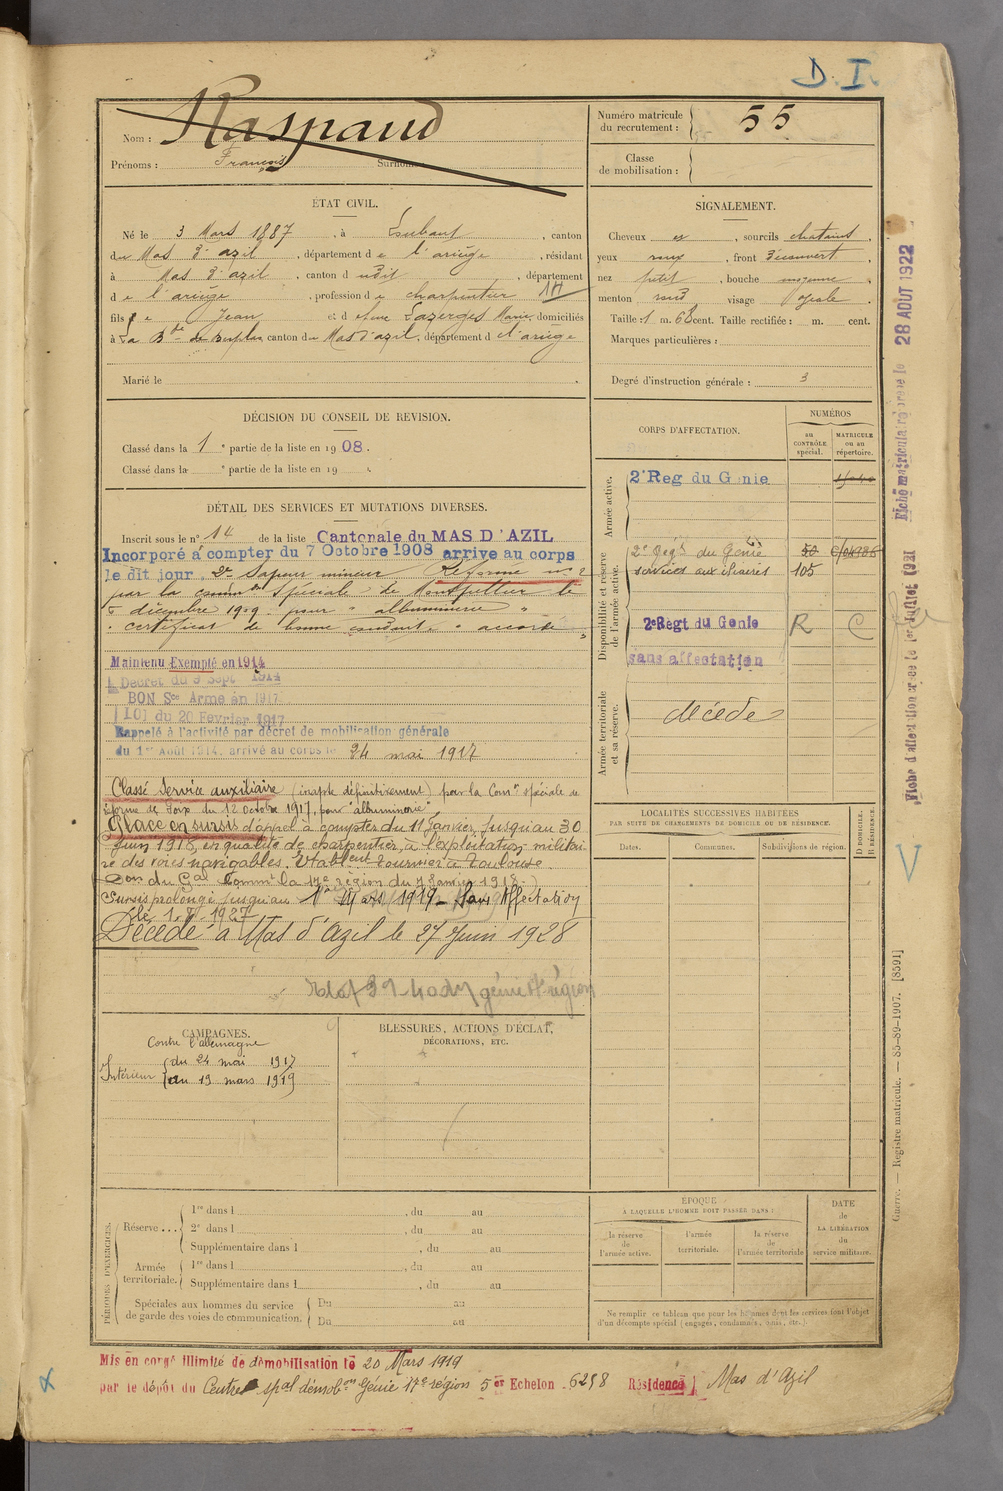 D. I.
Nom : Raspaud
Prénoms : François Surnoms :
Numéro matricule du recrutement : 55
Classe de mobilisation :
ÉTAT CIVIL.
Né le 3 Mars 1887, à , canton
du Mas d'azil, département de l'ariège, résidant
à Mas d'azil, canton d udit, département
de l'ariège, profession de charpentier
fils de Jean et de Lazerges Marie, domiciliés
à La B^de de canton du Mas d'azil, département de l'ariège
Marié le
SIGNALEMENT.
Cheveux et , sourcils chatains,
yeux roux, front découvert,
nez petit, bouche moyenne
menton rond visage ovale.
Taille : 1 m. 68 cent. Taille rectifiée : m. cent.
Marques particulières :
Degré d'instruction générale : 3
DÉCISION DU CONSEIL DE REVISION.
Classé dans la 1^e partie de la liste en 1908.
Classé dans la ^e partie de la liste en 19 .
DÉTAIL DES SERVICES ET MUTATIONS DIVERSES.
Inscrit sous le n° 14 de la liste Cantonale du MAS D'AZIL
Incorporé à compter du 7 Octobre 1908 arrive au corps
le dit jour. 2e Sapeur mineur Réforme n° 2
par la comm^on spéciale de Montpellier le
5 décembre 1909 pour "albuminerie"
"certificat de bonne conduite" "accordé"
Maintenu Exempté en 1914
Decret du 9 Sept 1914
BON S^ce Armé en 1917
LOI du 20 Février 1917
Rappelé à l'activité par décret de mobilisation générale
du 1^er Août 1914, arrivé au corps le 24 mai 1917
Classé Service auxiliaire (inapte définitivement) par la Com^on spéciale de
réforme de Foix du 12 octobre 1917, pour "albuminerie"
Placé en sursis d'appel à compter du 11 Janvier jusqu'au 30
Juin 1918, en qualité de charpentier, à l'exploitation militai-
re des voies navigables. Établ^ent Tournier à Toulouse
(Don du G^al Comm^t la 17^e région du 7 Janvier 1918.)
Sursis prolongé jusqu'au 1^er Mars 1919 - Sans Affectation
dès 1. 1927
Décédé à Mas d'Azil le 27 Juin 1928
CORPS D'AFFECTATION.
NUMÉROS
au CONTRÔLE spécial.
MATRICULE ou au répertoire.
Armée active.
2^e Reg du Génie
Disponibilité et réserve de l'armée active.
2^e Reg^t du Génie 50
services auxiliaires 105
2^e Régt du Génie R C
sans affectation
Armée territoriale et sa réserve.
décédé
LOCALITÉS SUCCESSIVES HABITÉES
PAR SUITE DE CHANGEMENTS DE DOMICILE OU DE RÉSIDENCE.
Dates. Communes. Subdivisions de région. D DOMICILE. R RÉSIDENCE.
CAMPAGNES.
Contre l'allemagne
Intérieur { du 24 mai 1917
au 19 mars 1919
BLESSURES, ACTIONS D'ÉCLAT,
DÉCORATIONS, ETC.
PÉRIODES D'EXERCICES.
Réserve... 1^re dans l , du au
2^e dans l , du au
Supplémentaire dans l , du au
Armée territoriale. 1^re dans l , du au
Supplémentaire dans l , du au
Spéciales aux hommes du service de garde des voies de communication. Du au
Du au
ÉPOQUE
A LAQUELLE L'HOMME DOIT PASSER DANS :
la réserve de l'armée active.
l'armée territoriale.
la réserve de l'armée territoriale
DATE de LA LIBÉRATION du service militaire.
Ne remplir ce tableau que pour les hommes dont les services font l'objet
d'un décompte spécial (engagés, condamnés, omis, etc.).
Mis en congé illimité de démobilisation le 20 Mars 1919
par le dépôt du Centre spal démob^on Génie 17^e région 5^er Echelon 6258 Résidence Mas d'Azil
Fiche matriculaire dressée le 28 AOUT 1922
Fiche d'affectation créée le 1er Juillet 1921
V
Guerre. — Registre matricule. — 85-89-1907. [8591]